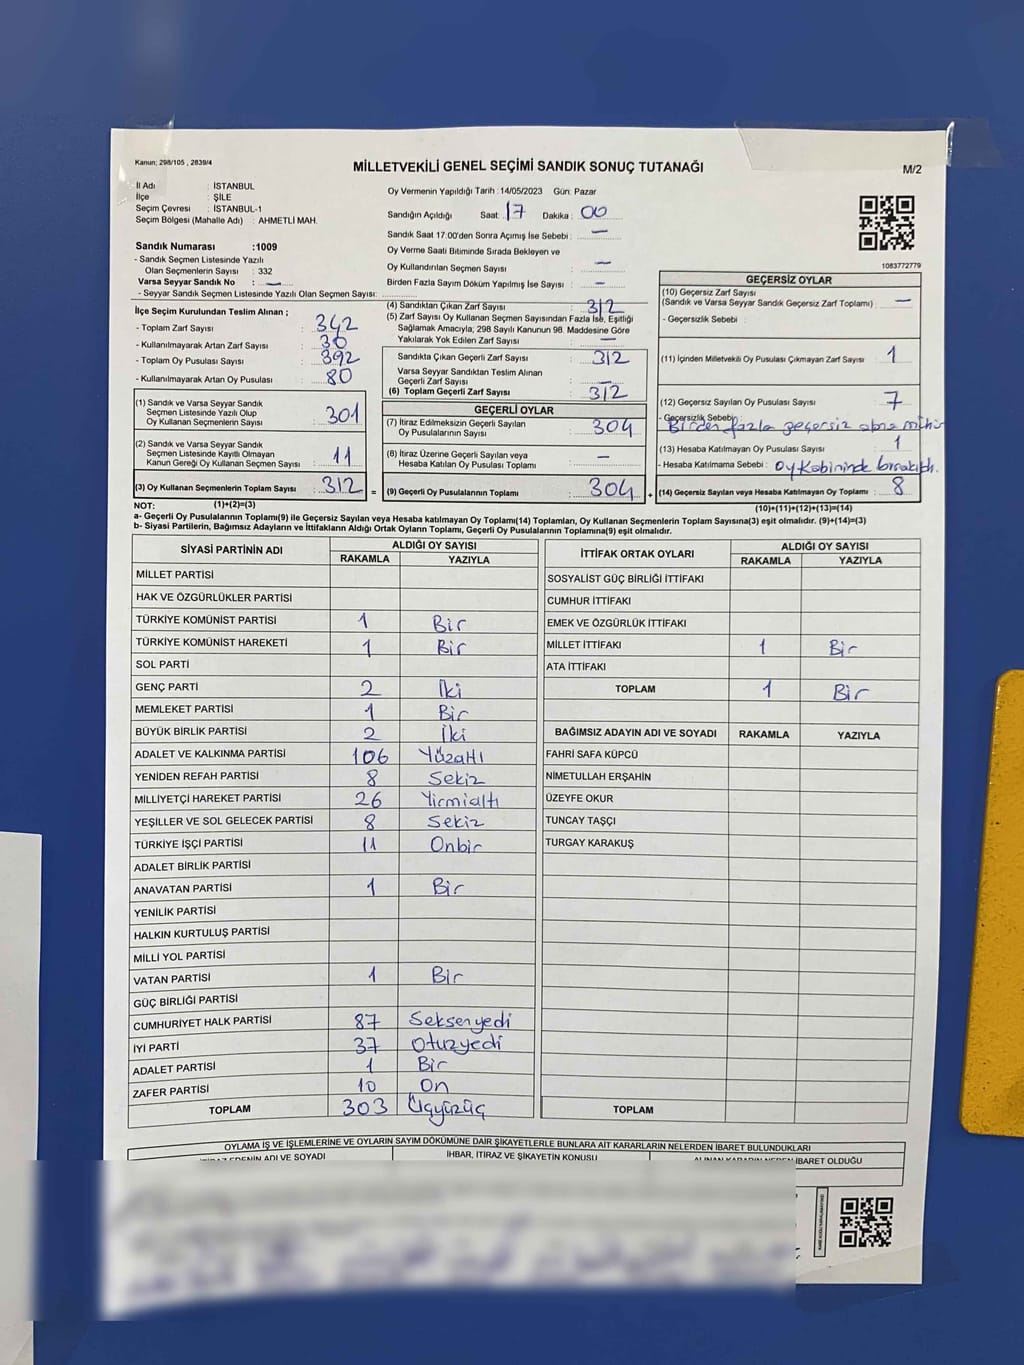 Kanun; 298/105 , 2839/4
MİLLETVEKİLİ GENEL SEÇİMİ SANDIK SONUÇ TUTANAĞI
M/2
İl Adı : İSTANBUL
İlçe : ŞİLE
Seçim Çevresi : İSTANBUL-1
Seçim Bölgesi (Mahalle Adı) : AHMETLİ MAH.
Sandık Numarası :1009
- Sandık Seçmen Listesinde Yazılı
Olan Seçmenlerin Sayısı : 332
Varsa Seyyar Sandık No : —
- Seyyar Sandık Seçmen Listesinde Yazılı Olan Seçmen Sayısı:
Oy Vermenin Yapıldığı Tarih :14/05/2023 Gün: Pazar
Sandığın Açıldığı Saat: 17 Dakika : 00
Sandık Saat 17:00'den Sonra Açımış İse Sebebi : —
Oy Verme Saati Bitiminde Sırada Bekleyen ve
Oy Kullandırılan Seçmen Sayısı : —
Birden Fazla Sayım Döküm Yapılmış İse Sayısı : —
1083772779
İlçe Seçim Kurulundan Teslim Alınan ;
- Toplam Zarf Sayısı : 342
- Kullanılmayarak Artan Zarf Sayısı : 30
- Toplam Oy Pusulası Sayısı : 392
- Kullanılmayarak Artan Oy Pusulası : 80
(1) Sandık ve Varsa Seyyar Sandık
Seçmen Listesinde Yazılı Olup
Oy Kullanan Seçmenlerin Sayısı : 301
(2) Sandık ve Varsa Seyyar Sandık
Seçmen Listesinde Kayıtlı Olmayan
Kanun Gereği Oy Kullanan Seçmen Sayısı : 11
(3) Oy Kullanan Seçmenlerin Toplam Sayısı : 312 =
(4) Sandıktan Çıkan Zarf Sayısı : 312
(5) Zarf Sayısı Oy Kullanan Seçmen Sayısından Fazla İse, Eşitliği
Sağlamak Amacıyla; 298 Sayılı Kanunun 98. Maddesine Göre
Yakılarak Yok Edilen Zarf Sayısı : —
Sandıkta Çıkan Geçerli Zarf Sayısı : 312
Varsa Seyyar Sandıktan Teslim Alınan
Geçerli Zarf Sayısı : —
(6) Toplam Geçerli Zarf Sayısı : 312
GEÇERLİ OYLAR
(7) İtiraz Edilmeksizin Geçerli Sayılan
Oy Pusulalarının Sayısı : 304
(8) İtiraz Üzerine Geçerli Sayılan veya
Hesaba Katılan Oy Pusulası Toplamı : —
(9) Geçerli Oy Pusulalarının Toplamı : 304 +
GEÇERSİZ OYLAR
(10) Geçersiz Zarf Sayısı
(Sandık ve Varsa Seyyar Sandık Geçersiz Zarf Toplamı) : —
- Geçersizlik Sebebi :
(11) İçinden Milletvekili Oy Pusulası Çıkmayan Zarf Sayısı : 1
(12) Geçersiz Sayılan Oy Pusulası Sayısı : 7
- Geçersizlik Sebebi : Birden fazla geçersiz
(13) Hesaba Katılmayan Oy Pusulası Sayısı : 1
- Hesaba Katılmama Sebebi : Oy Kabininde bırakıldı.
(14) Geçersiz Sayılan veya Hesaba Katılmayan Oy Toplamı : 8
NOT: (1)+(2)=(3) (10)+(11)+(12)+(13)=(14)
a- Geçerli Oy Pusulalarının Toplamı(9) ile Geçersiz Sayılan veya Hesaba katılmayan Oy Toplamı(14) Toplamları, Oy Kullanan Seçmenlerin Toplam Sayısına(3) eşit olmalıdır. (9)+(14)=(3)
b- Siyasi Partilerin, Bağımsız Adayların ve İttifakların Aldığı Oyların Toplamı, Geçerli Oy Pusulalarının Toplamına(9) eşit olmalıdır.
SİYASİ PARTİNİN ADI ALDIĞI OY SAYISI
RAKAMLA YAZIYLA
MİLLET PARTİSİ
HAK VE ÖZGÜRLÜKLER PARTİSİ
TÜRKİYE KOMÜNİST PARTİSİ 1 Bir
TÜRKİYE KOMÜNİST HAREKETİ 1 Bir
SOL PARTİ
GENÇ PARTİ 2 İki
MEMLEKET PARTİSİ 1 Bir
BÜYÜK BİRLİK PARTİSİ 2 İki
ADALET VE KALKINMA PARTİSİ 106 Yüzaltı
YENİDEN REFAH PARTİSİ 8 Sekiz
MİLLİYETÇİ HAREKET PARTİSİ 26 Yirmialtı
YEŞİLLER VE SOL GELECEK PARTİSİ 8 Sekiz
TÜRKİYE İŞÇİ PARTİSİ 11 Onbir
ADALET BİRLİK PARTİSİ
ANAVATAN PARTİSİ 1 Bir
YENİLİK PARTİSİ
HALKIN KURTULUŞ PARTİSİ
MİLLİ YOL PARTİSİ
VATAN PARTİSİ 1 Bir
GÜÇ BİRLİĞİ PARTİSİ
CUMHURİYET HALK PARTİSİ 87 Seksenyedi
İYİ PARTİ 37 Otuzyedi
ADALET PARTİSİ 1 Bir
ZAFER PARTİSİ 10 On
TOPLAM 303 Üçyüzüç
İTTİFAK ORTAK OYLARI ALDIĞI OY SAYISI
RAKAMLA YAZIYLA
SOSYALİST GÜÇ BİRLİĞİ İTTİFAKI
CUMHUR İTTİFAKI
EMEK VE ÖZGÜRLÜK İTTİFAKI
MİLLET İTTİFAKI 1 Bir
ATA İTTİFAKI
TOPLAM 1 Bir
BAĞIMSIZ ADAYIN ADI VE SOYADI RAKAMLA YAZIYLA
FAHRİ SAFA KÜPCÜ
NİMETULLAH ERŞAHİN
ÜZEYFE OKUR
TUNCAY TAŞÇI
TURGAY KARAKUŞ
TOPLAM
OYLAMA İŞ VE İŞLEMLERİNE VE OYLARIN SAYIM DÖKÜMÜNE DAİR ŞİKAYETLERLE BUNLARA AİT KARARLARIN NELERDEN İBARET BULUNDUKLARI
ADI VE SOYADI İHBAR, İTİRAZ VE ŞİKAYETİN KONUSU İBARET OLDUĞU